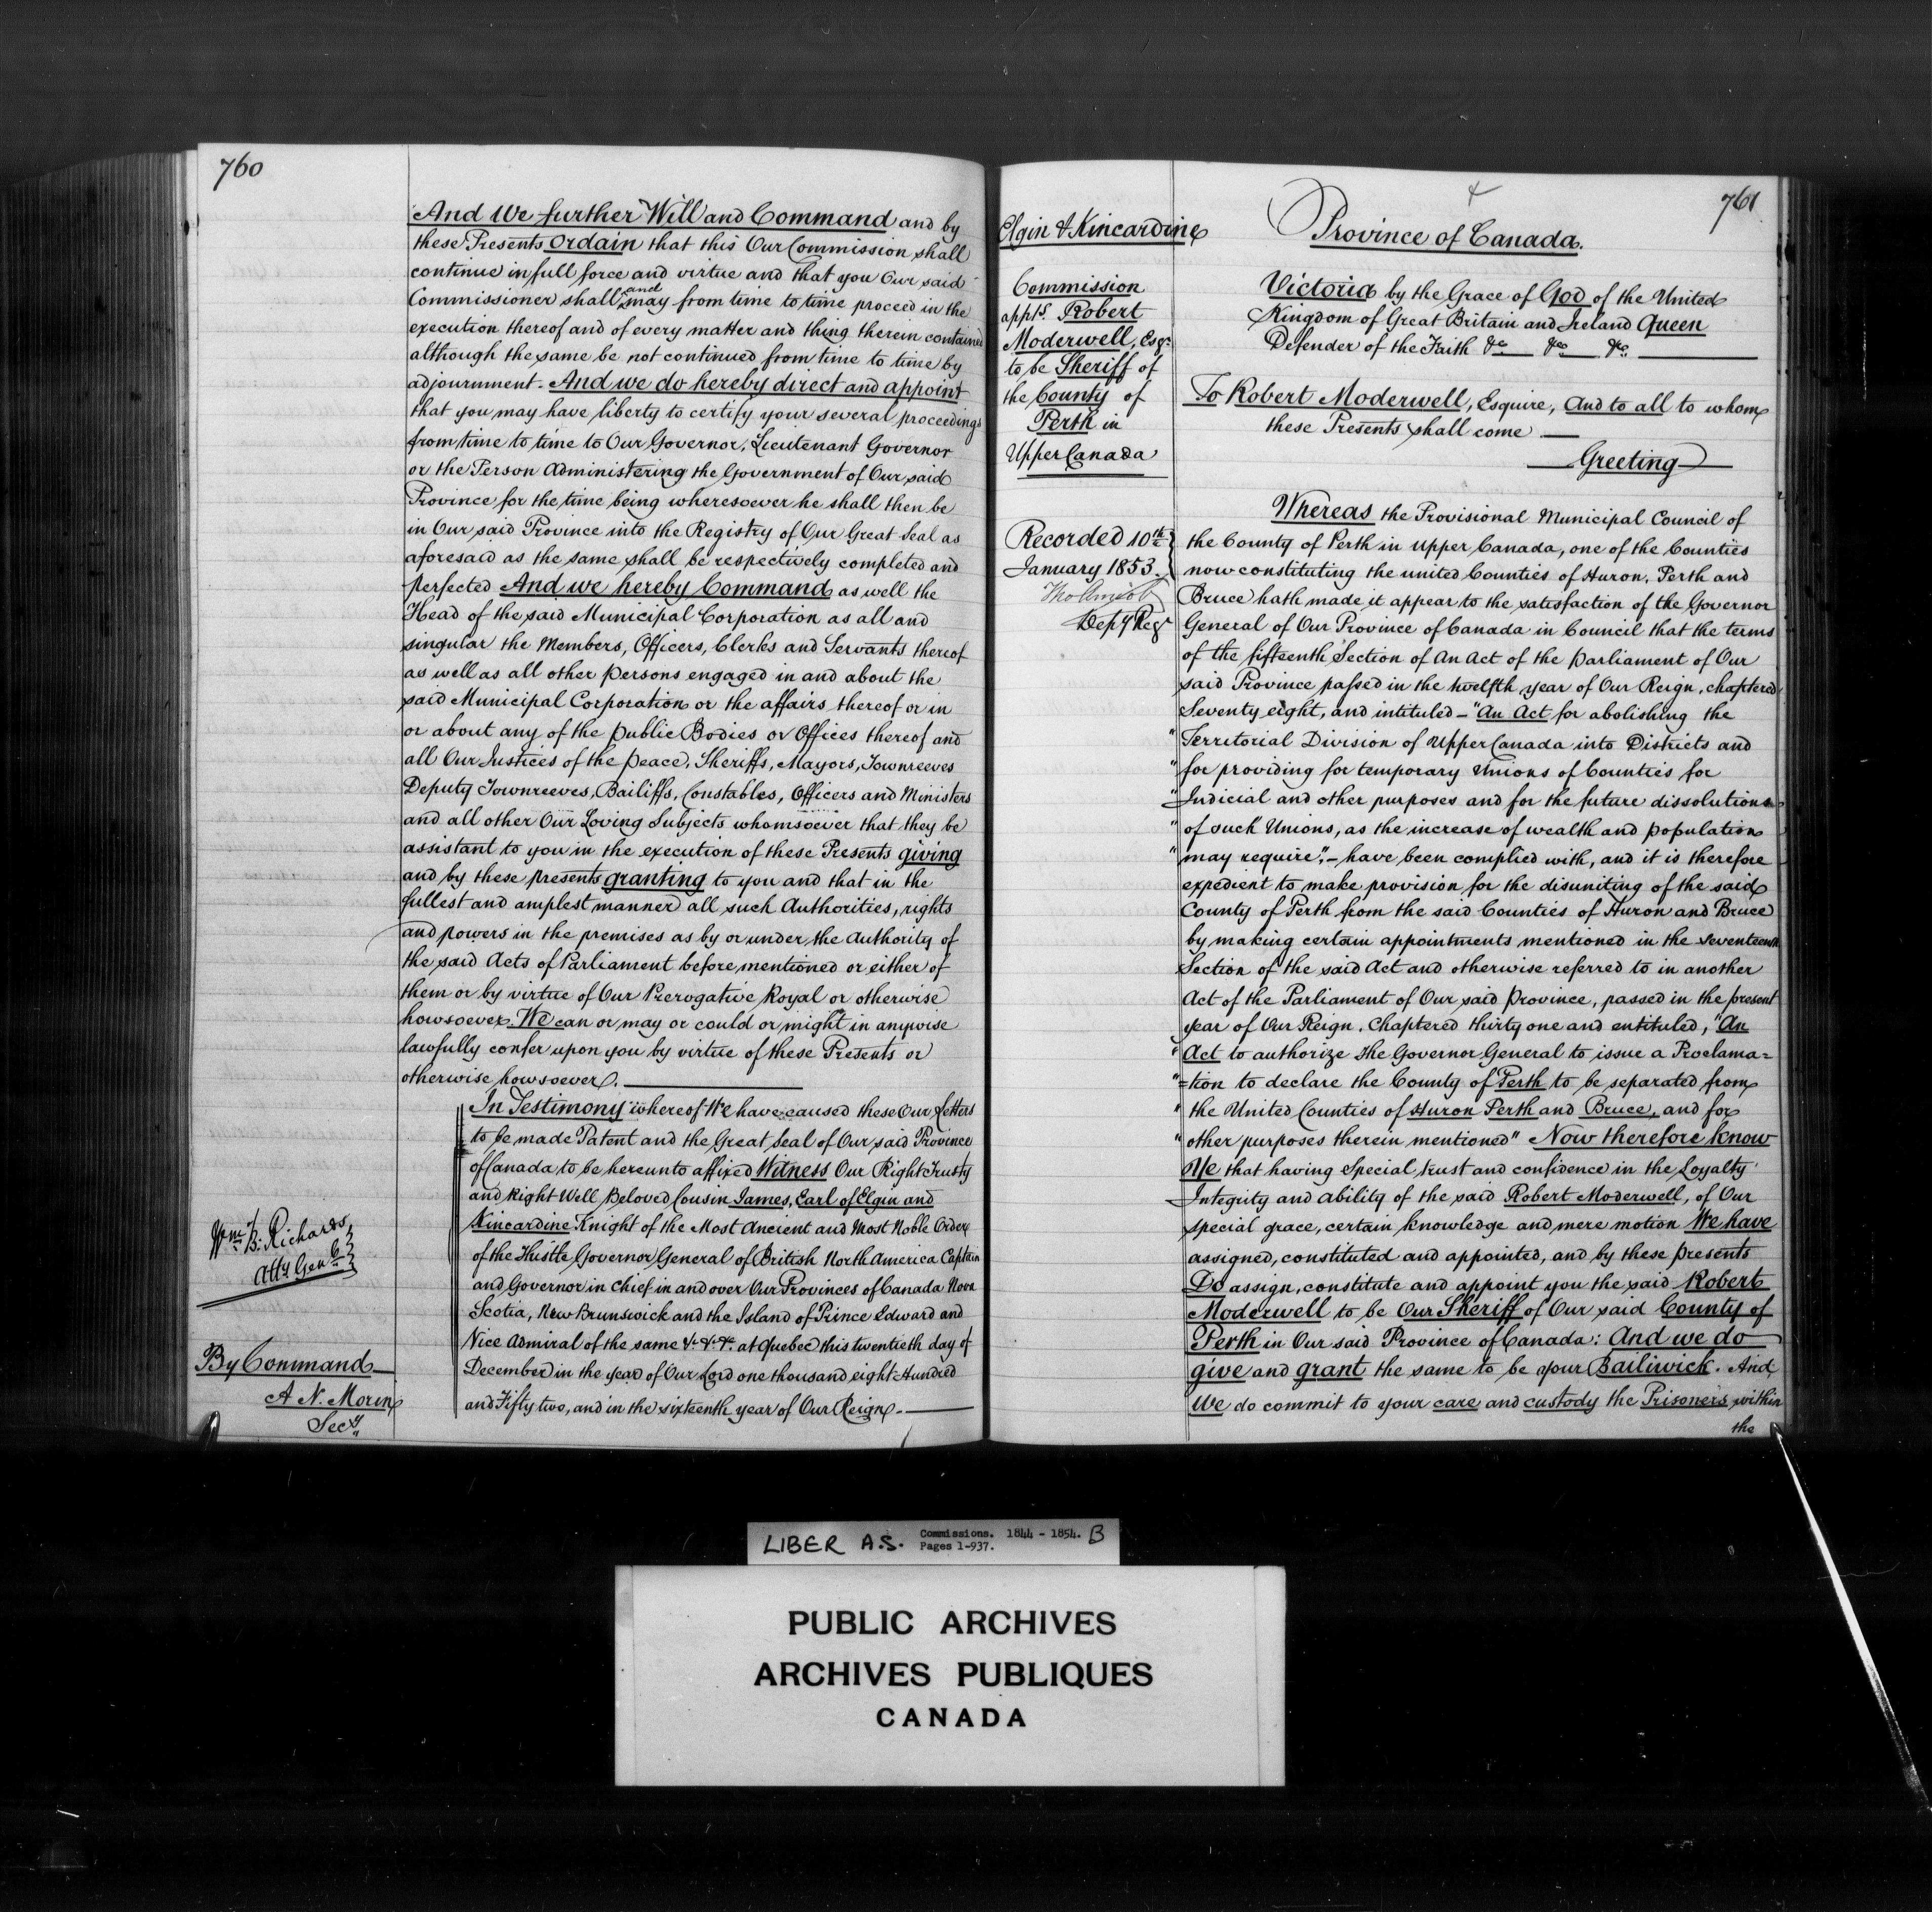 760
And We further Will and Command and by
these Presents Ordain that this Our Commission shall
continue in full force and virtue and that you Our said
Commissioner shall and may from time to time proceed in the
execution thereof and of every matter and thing therein contained
although the same be not continued from time to time by
adjournment. And we do hereby direct and appoint
that you may have liberty to certify your several proceedings
from time to time to Our Governor, Lieutenant Governor
or the Person Administering the Government of Our said
Province for the time being wheresoever he shall then be
in Our said Province into the Registry of Our Great Seal as
aforesaid as the same shall be respectively completed and
perfected And we hereby Command as well the
Head of the said Municipal Corporation as all and
singular the Members, Officers, Clerks and Servants thereof
as well as all other persons engaged in and about the
said Municipal Corporation or the affairs thereof or in
or about any of the Public Bodies or Offices thereof and
all Our Justices of the Peace, Sheriffs, Mayors, Townreeves
Deputy Townreeves, Bailiffs, Constables, Officers and Ministers
and all other Our Loving Subjects whomsoever that they be
assistant to you in the execution of these Presents giving
and by these presents granting to you and that in the
fullest and amplest manner all such Authorities, rights
and powers in the premises as by or under the Authority of
the said Acts of Parliament before mentioned or either of
them or by virtue of Our Prerogative Royal or otherwise
howsoever. We can or may or could or might in anywise
lawfully confer upon you by virtue of these Presents or
otherwise howsoever.
In Testimony whereof We have caused these Our Letters
to be made Patent and the Great Seal of Our said Province
of Canada to be hereunto affixed Witness Our Right Trusty
and Right Well Beloved Cousin James, Earl of Elgin and
Kincardine Knight of the Most Ancient and Most Noble Order
of the Thistle Governor General of British North America Captain
and Governor in Chief in and over Our Provinces of Canada Nova
Scotia, New Brunswick and the Island of Prince Edward and
Vice Admiral of the same &c &c &c at Quebec this twentieth day of
December in the year of Our Lord one thousand eight Hundred
and Fifty two, and in the sixteenth year of Our Reign.
Wm B. Richards
Atty Genl
By Command
A N. Morin
Secy
761
Elgin & Kincardine
Commission
apptg Robert
Moderwell, Esqr.
to be Sheriff of
the County of
Perth in
Upper Canada
Recorded 10th
January 1853.
Depy Regr
Province of Canada.
Victoria by the Grace of God of the United
Kingdom of Great Britain and Ireland Queen
Defender of the Faith &c &c &c
To Robert Moderwell, Esquire, And to all to whom
these Presents shall come
Greeting
Whereas the Provisional Municipal Council of
the County of Perth in Upper Canada, one of the Counties
now constituting the united Counties of Huron, Perth and
Bruce hath made it appear to the satisfaction of the Governor
General of Our Province of Canada in Council that the terms
of the fifteenth Section of An Act of the Parliament of Our
said Province passed in the twelfth year of Our Reign, chaptered
Seventy eight, and intituled – "An Act for abolishing the
" Territorial Division of Upper Canada into Districts and
" for providing for temporary Unions of Counties for
" Judicial and other purposes and for the future dissolutions
" of such Unions, as the increase of wealth and population
" may require", – have been complied with, and it is therefore
expedient to make provision for the disuniting of the said
County of Perth from the said Counties of Huron and Bruce
by making certain appointments mentioned in the seventeenth
Section of the said Act and otherwise referred to in another
Act of the Parliament of Our said Province, passed in the present
year of Our Reign, Chaptered thirty one and entituled, "An
" Act to authorize the Governor General to issue a Proclama=
" =tion to declare the County of Perth to be separated from
" the United Counties of Huron Perth and Bruce, and for
" other purposes therein mentioned" Now therefore know
Ye that having special trust and confidence in the Loyalty
Integrity and ability of the said Robert Moderwell, of Our
special grace, certain knowledge and mere motion We have
assigned, constituted and appointed, and by these presents
Do assign, constitute and appoint you the said Robert
Moderwell to be Our Sheriff of Our said County of
Perth in Our said Province of Canada: And we do
give and grant the same to be your Bailiwick. And
We do commit to your care and custody the Prisoners within
the
LIBER A.S. Commissions. 1844 - 1854. B
Pages 1-937.
PUBLIC ARCHIVES
ARCHIVES PUBLIQUES
CANADA